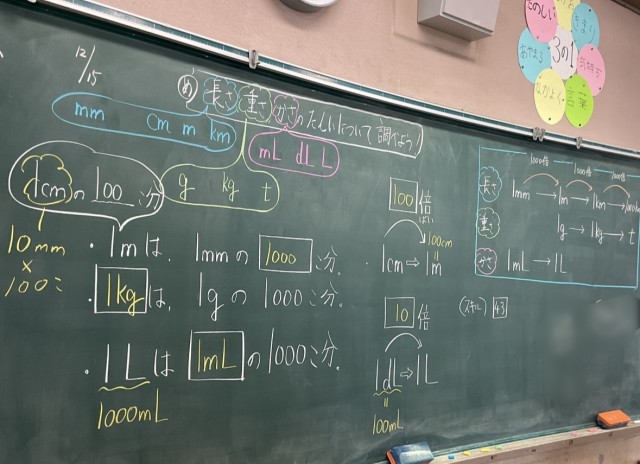 12/15
め 長さ 重さ かさのたんいについて調べよう!
mm cm m km
mL dL L
g kg t
1cmの100こ分
10mm
×
100こ
・1mは、1mmの1000こ分。
・1kgは、1gの1000こ分。
・1Lは 1mLの1000こ分。
1000mL
100倍
ばい
100cm
=
1cm⇒1m
10倍
1dL⇒1L
=
100mL
1000倍 1000倍 1000倍
長さ 1mm→1m→1km→
重さ 1g→1kg→t
かさ 1mL→1L
(スキル) 43
たのしい
3の1
あやまる
なかよく
言葉